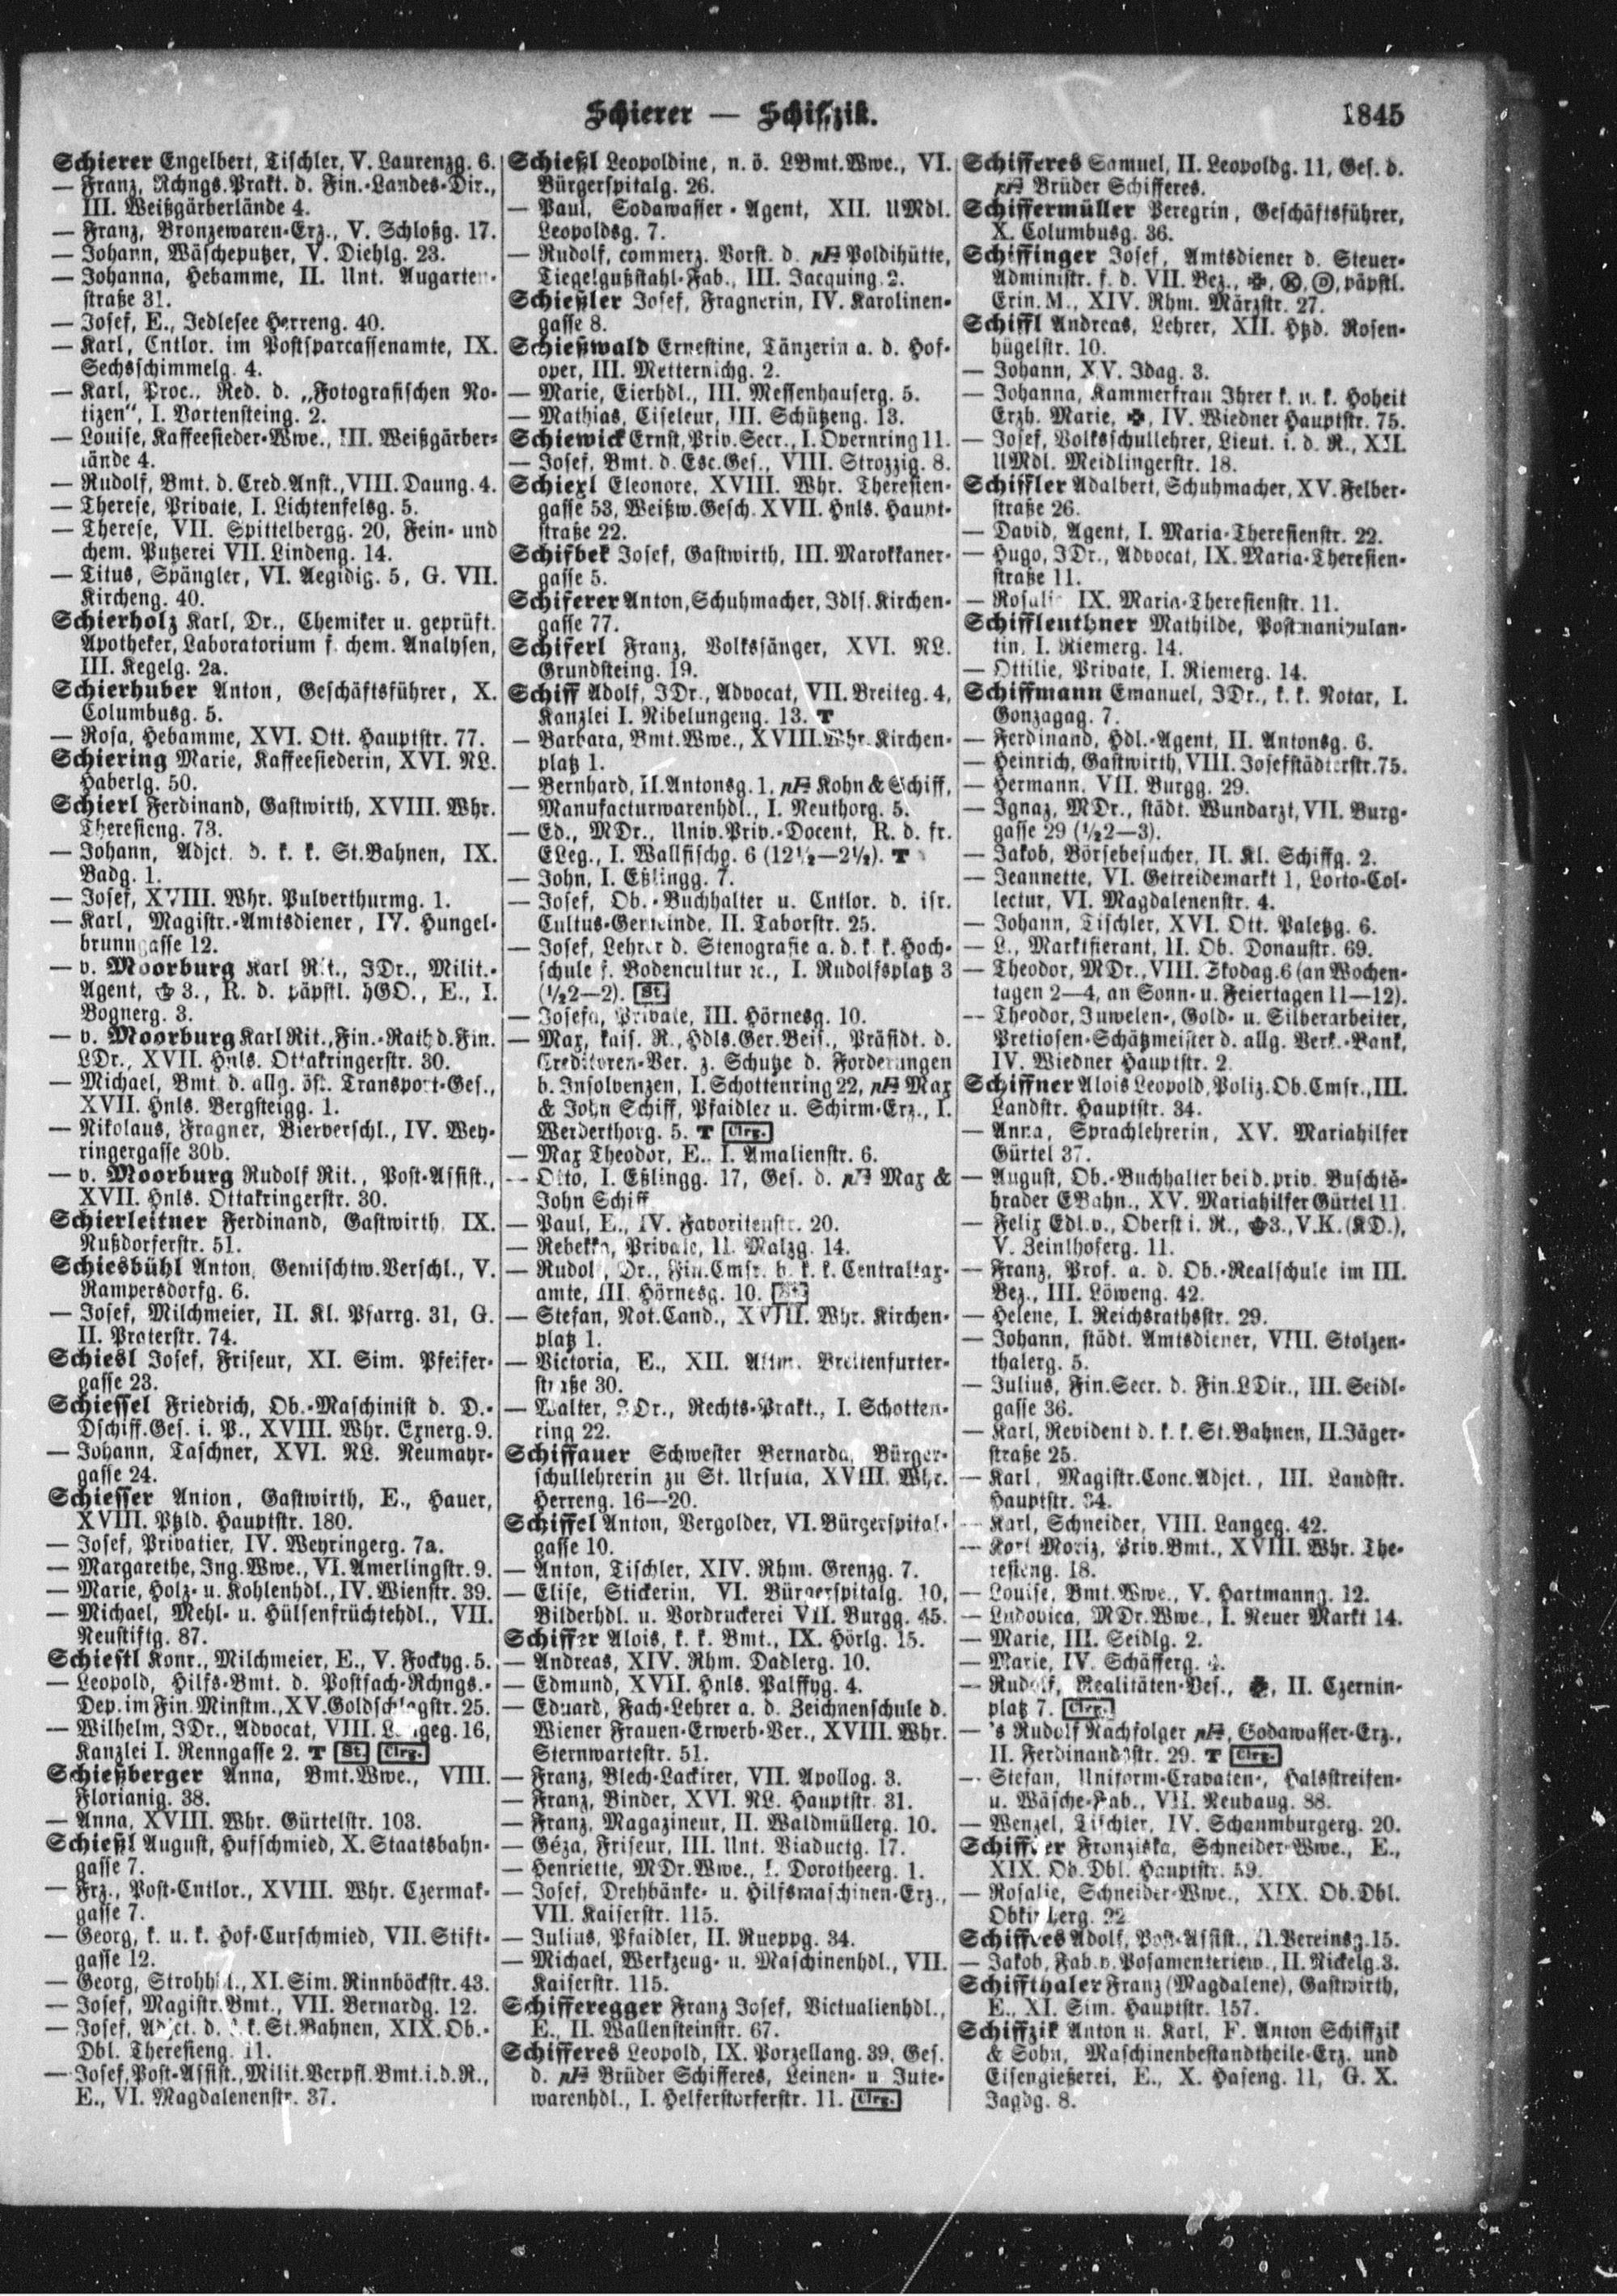 Schierer — Schiffzik.
1845
Schierer Engelbert, Tischler, V. Laurenzg. 6.
— Franz, Rchngs.Prakt. d. Fin.-Landes-Dir.,
III. Weißgärberlände 4.
— Franz, Bronzewaren-Erz., V. Schloßg. 17.
— Johann, Wäscheputzer, V. Diehlg. 23.
— Johanna, Hebamme, II. Unt. Augarten-
straße 31.
— Josef, E., Jedlesee Herreng. 40.
— Karl, Cntlor. im Postsparcassenamte, IX.
Sechsschimmelg. 4.
— Karl, Proc., Red. d. „Fotografischen No-
tizen“, I. Bartensteing. 2.
— Louise, Kaffeesieder-Wwe., III. Weißgärber-
lände 4.
— Rudolf, Bmt. d. Cred.Anst., VIII. Daung. 4.
— Therese, Private, I. Lichtenfelsg. 5.
— Therese, VII. Spittelbergg. 20, Fein- und
chem. Putzerei VII. Lindeng. 14.
— Titus, Spängler, VI. Aegidig. 5, G. VII.
Kircheng. 40.
Schierholz Karl, Dr., Chemiker u. geprüft.
Apotheker, Laboratorium f. chem. Analysen,
III. Kegelg. 2a.
Schierhuber Anton, Geschäftsführer, X.
Columbusg. 5.
— Rosa, Hebamme, XVI. Ott. Hauptstr. 77.
Schiering Marie, Kaffeesiederin, XVI. NL.
Haberlg. 50.
Schierl Ferdinand, Gastwirth, XVIII. Whr.
Theresieng. 73.
— Johann, Adjct. d. k. k. St.Bahnen, IX.
Badg. 1.
— Josef, XVIII. Whr. Pulverthurmg. 1.
— Karl, Magistr.-Amtsdiener, IV. Hungel-
brunngasse 12.
— v. Moorburg Karl Rit., JDr., Milit.-
Agent, 3., R. d. päpstl. hGO., E., I.
Bognerg. 3.
— v. Moorburg Karl Rit., Fin.-Rath d. Fin.
LDr., XVII. Hnls. Ottakringerstr. 30.
— Michael, Bmt. d. allg. öst. Transport-Ges.,
XVII. Hnls. Bergsteigg. 1.
— Nikolaus, Fragner, Bierverschl., IV. Wey-
ringergasse 30b.
— v. Moorburg Rudolf Rit., Post-Assist.,
XVII. Hnls. Ottakringerstr. 30.
Schierleitner Ferdinand, Gastwirth, IX.
Nußdorferstr. 51.
Schiesbühl Anton, Gemischtw.Verschl., V.
Rampersdorfg. 6.
— Josef, Milchmeier, II. Kl. Pfarrg. 31, G.
II. Praterstr. 74.
Schiesl Josef, Friseur, XI. Sim. Pfeifer-
gasse 23.
Schiessel Friedrich, Ob.-Maschinist d. D.-
Dschiff.Ges. i. P., XVIII. Whr. Exnerg. 9.
— Johann, Taschner, XVI. NL. Neumayr-
gasse 24.
Schiesser Anton, Gastwirth, E., Hauer,
XVIII. Ptzld. Hauptstr. 180.
— Josef, Privatier, IV. Weyringerg. 7a.
— Margarethe, Ing.Wwe., VI. Amerlingstr. 9.
— Marie, Holz- u. Kohlenhdl., IV. Wienstr. 39.
— Michael, Mehl- u. Hülsenfrüchtehdl., VII.
Neustiftg. 87.
Schiestl Konr., Milchmeier, E., V. Fockyg. 5.
— Leopold, Hilfs-Bmt. d. Postfach-Rchngs.-
Dep. im Fin.Minstm., XV. Goldschlagstr. 25.
— Wilhelm, JDr., Advocat, VIII. Langeg. 16,
Kanzlei I. Renngasse 2. T St. Clrg.
Schießberger Anna, Bmt.Wwe., VIII.
Florianig. 38.
— Anna, XVIII. Whr. Gürtelstr. 103.
Schießl August, Hufschmied, X. Staatsbahn-
gasse 7.
— Frz., Post-Cntlor., XVIII. Whr. Czermak-
gasse 7.
— Georg, k. u. k. Hof-Curschmied, VII. Stift-
gasse 12.
— Georg, Strohhdl., XI. Sim. Rinnböckstr. 43.
— Josef, Magistr.Bmt., VII. Bernardg. 12.
— Josef, Adjct. d. k. k. St.Bahnen, XIX. Ob.-
Dbl. Theresieng. 11.
— Josef, Post-Assist., Milit.Verpfl.Bmt. i. d. R.,
E., VI. Magdalenenstr. 37.
Schießl Leopoldine, n. ö. LBmt.Wwe., VI.
Bürgerspitalg. 26.
— Paul, Sodawasser-Agent, XII. UMdl.
Leopoldsg. 7.
— Rudolf, commerz. Vorst. d. Poldihütte,
Tiegelgußstahl-Fab., III. Jacquing. 2.
Schießler Josef, Fragnerin, IV. Karolinen-
gasse 8.
Schießwald Ernestine, Tänzerin a. d. Hof-
oper, III. Metternichg. 2.
— Marie, Eierhdl., III. Messenhauserg. 5.
— Mathias, Ciseleur, III. Schützeng. 13.
Schiewick Ernst, Priv.Secr., I. Opernring 11.
— Josef, Bmt. d. Esc.Ges., VIII. Strozzig. 8.
Schiexl Eleonore, XVIII. Whr. Theresien-
gasse 53, Weißw.Gesch. XVII. Hnls. Haupt-
straße 22.
Schifbek Josef, Gastwirth, III. Marokkaner-
gasse 5.
Schiferer Anton, Schuhmacher, Jdls. Kirchen-
gasse 77.
Schiferl Franz, Volkssänger, XVI. NL.
Grundsteing. 19.
Schiff Adolf, JDr., Advocat, VII. Breiteg. 4,
Kanzlei I. Nibelungeng. 13. T
— Barbara, Bmt.Wwe., XVIII. Whr. Kirchen-
platz 1.
— Bernhard, II. Antonsg. 1, Kohn & Schiff,
Manufacturwarenhdl., I. Neuthorg. 5.
— Ed., MDr., Univ.Priv.-Docent, R. d. fr.
ELeg., I. Wallfischg. 6 (12½—2½). T
— John, I. Eßlingg. 7.
— Josef, Ob.-Buchhalter u. Cntlor. d. isr.
Cultus-Gemeinde, II. Taborstr. 25.
— Josef, Lehrer d. Stenografie a. d. k. k. Hoch-
schule f. Bodencultur ꝛc., I. Rudolfsplatz 3
(½2—2). St.
— Josefa, Private, III. Hörnesg. 10.
— Max, kais. R., Hdls.Ger.Beis., Präsidt. d.
Creditoren-Ver. z. Schutze d. Forderungen
b. Insolvenzen, I. Schottenring 22, Max
& John Schiff, Pfaidler u. Schirm-Erz., I.
Werderthorg. 5. T Clrg.
— Max Theodor, E., I. Amalienstr. 6.
— Otto, I. Eßlingg. 17, Ges. d. Max &
John Schiff
— Paul, E., IV. Favoritenstr. 20.
— Rebekka, Private, II. Malzg. 14.
— Rudolf, Dr., Fin.Cmsr. b. k. k. Centraltax-
amte, III. Hörnesg. 10. St.
— Stefan, Not.Cand., XVIII. Whr. Kirchen-
platz 1.
— Victoria, E., XII. Altm. Breitenfurter-
straße 30.
— Walter, JDr., Rechts-Prakt., I. Schotten-
ring 22.
Schiffauer Schwester Bernarda, Bürger-
schullehrerin zu St. Ursula, XVIII. Whr.
Herreng. 16—20.
Schiffel Anton, Vergolder, VI. Bürgerspital-
gasse 10.
— Anton, Tischler, XIV. Rhm. Grenzg. 7.
— Elise, Stickerin, VI. Bürgerspitalg. 10,
Bilderhdl. u. Vordruckerei VII. Burgg. 45.
Schiffer Alois, k. k. Bmt., IX. Hörlg. 15.
— Andreas, XIV. Rhm. Dadlerg. 10.
— Edmund, XVII. Hnls. Palffyg. 4.
— Eduard, Fach-Lehrer a. d. Zeichnenschule d.
Wiener Frauen-Erwerb-Ver., XVIII. Whr.
Sternwartestr. 51.
— Franz, Blech-Lackirer, VII. Apollog. 3.
— Franz, Binder, XVI. NL. Hauptstr. 31.
— Franz, Magazineur, II. Waldmüllerg. 10.
— Géza, Friseur, III. Unt. Viaductg. 17.
— Henriette, MDr.Wwe., I. Dorotheerg. 1.
— Josef, Drehbänke- u. Hilfsmaschinen-Erz.,
VII. Kaiserstr. 115.
— Julius, Pfaidler, II. Rueppg. 34.
— Michael, Werkzeug- u. Maschinenhdl., VII.
Kaiserstr. 115.
Schifferegger Franz Josef, Victualienhdl.,
E., II. Wallensteinstr. 67.
Schifferes Leopold, IX. Porzellang. 39, Ges.
d. Brüder Schifferes, Leinen- u. Jute-
warenhdl., I. Helferstorferstr. 11. Clrg.
Schifferes Samuel, II. Leopoldg. 11, Ges. d.
Brüder Schifferes.
Schiffermüller Peregrin, Geschäftsführer,
X. Columbusg. 36.
Schiffinger Josef, Amtsdiener d. Steuer-
Administr. f. d. VII. Bez., päpstl.
Erin.M., XIV. Rhm. Märzstr. 27.
Schiffl Andreas, Lehrer, XII. Htzd. Rosen-
hügelstr. 10.
— Johann, XV. Idag. 3.
— Johanna, Kammerfrau Ihrer k. u. k. Hoheit
Erzh. Marie, IV. Wiedner Hauptstr. 75.
— Josef, Volksschullehrer, Lieut. i. d. R., XII.
UMdl. Meidlingerstr. 18.
Schiffler Adalbert, Schuhmacher, XV. Felber-
straße 26.
— David, Agent, I. Maria-Theresienstr. 22.
— Hugo, JDr., Advocat, IX. Maria-Theresien-
straße 11.
— Rosalie IX. Maria-Theresienstr. 11.
Schiffleuthner Mathilde, Postmanipulan-
tin, I. Riemerg. 14.
— Ottilie, Private, I. Riemerg. 14.
Schiffmann Emanuel, JDr., k. k. Notar, I.
Gonzagag. 7.
— Ferdinand, Hdl.-Agent, II. Antonsg. 6.
— Heinrich, Gastwirth, VIII. Josefstädterstr. 75.
— Hermann, VII. Burgg. 29.
— Ignaz, MDr., städt. Wundarzt, VII. Burg-
gasse 29 (½2—3).
— Jakob, Börsebesucher, II. Kl. Schiffg. 2.
— Jeannette, VI. Getreidemarkt 1, Lotto-Col-
lectur, VI. Magdalenenstr. 4.
— Johann, Tischler, XVI. Ott. Paletzg. 6.
— L., Marktfierant, II. Ob. Donaustr. 69.
— Theodor, MDr., VIII. Skodag. 6 (an Wochen-
tagen 2—4, an Sonn- u. Feiertagen 11—12).
— Theodor, Juwelen-, Gold- u. Silberarbeiter,
Pretiosen-Schätzmeister d. allg. Verk.-Bank,
IV. Wiedner Hauptstr. 2.
Schiffner Alois Leopold, Poliz.Ob.Cmsr., III.
Landstr. Hauptstr. 34.
— Anna, Sprachlehrerin, XV. Mariahilfer
Gürtel 37.
— August, Ob.-Buchhalter bei d. priv. Buschtě-
hrader EBahn., XV. Mariahilfer Gürtel 11.
— Felix Edl. v., Oberst i. R., 3., V.K. (KD.),
V. Zeinlhoferg. 11.
— Franz, Prof. a. d. Ob.-Realschule im III.
Bez., III. Löweng. 42.
— Helene, I. Reichsrathsstr. 29.
— Johann, städt. Amtsdiener, VIII. Stolzen-
thalerg. 5.
— Julius, Fin.Secr. d. Fin.LDir., III. Seidl-
gasse 36.
— Karl, Revident d. k. k. St.Bahnen, II. Jäger-
straße 25.
— Karl, Magistr.Conc.Adjct., III. Landstr.
Hauptstr. 34.
— Karl, Schneider, VIII. Langeg. 42.
— Karl Moriz, Priv.Bmt., XVIII. Whr. The-
resieng. 18.
— Louise, Bmt.Wwe., V. Hartmanng. 12.
— Ludovica, MDr.Wwe., I. Neuer Markt 14.
— Marie, III. Seidlg. 2.
— Marie, IV. Schäfferg.
— Rudolf, Realitäten-Bes., II. Czernin-
platz 7. Clrg.
— 's Rudolf Nachfolger, Sodawasser-Erz.,
II. Ferdinandsstr. 29. T Clrg.
— Stefan, Uniform-Cravaten-, Halsstreifen-
u. Wäsche-Fab., VII. Neubaug. 88.
— Wenzel, Tischler, IV. Schaumburgerg. 20.
Schiffner Franziska, Schneider-Wwe., E.,
XIX. Ob.Dbl. Hauptstr. 59.
— Rosalie, Schneider-Wwe., XIX. Ob.Dbl.
22
Schiffres Adolf, Post-Assist., II. Vereinsg. 15.
— Jakob, Fab. v. Posamenteriew., II. Nickelg. 3.
Schiffthaler Franz (Magdalene), Gastwirth,
E., XI. Sim. Hauptstr. 157.
Schiffzik Anton u. Karl, F. Anton Schiffzik
& Sohn, Maschinenbestandtheile-Erz. und
Eisengießerei, E., X. Haseng. 11, G. X.
Jagdg. 8.